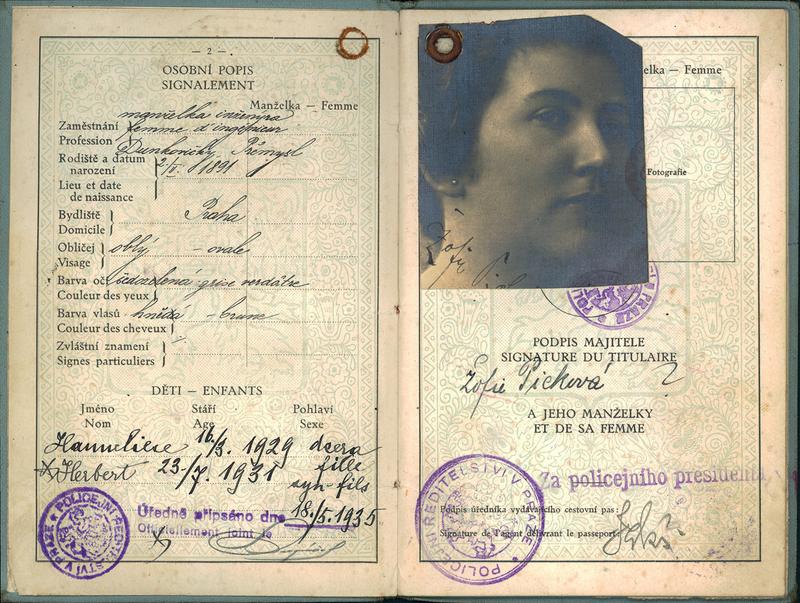 — 2 —
OSOBNÍ POPIS
SIGNALEMENT
Manželka — Femme
Zaměstnání manželka inženýra
Profession femme d'ingénieur
Rodiště a datum narození Přemysl
2/ 1891
Lieu et date de naissance
Bydliště Praha
Domicile
Obličej oblý – ovale
Visage
Barva očí šedozelená – grise verdâtre
Couleur des yeux
Barva vlasů hnědá – brune
Couleur des cheveux
Zvláštní znamení
Signes particuliers
DĚTI — ENFANTS
Jméno Stáří Pohlaví
Nom Age Sexe
Hanneliese 16/3. 1929 dcera fille
Herbert 23/7. 1931 syn – fils
Úředně připsáno dne 18./5. 1935
Officiellement joint le
POLICEJNÍ ŘEDITELSTVÍ V PRAZE
elka — Femme
Fotografie
Žof
PODPIS MAJITELE
SIGNATURE DU TITULAIRE
Žofie Picková
A JEHO MANŽELKY
ET DE SA FEMME
Za policejního presidenta
Podpis úředníka vydávajícího cestovní pas:
Signature de l'agent délivrant le passeport:
POLICEJNÍ ŘEDITELSTVÍ V PRAZE